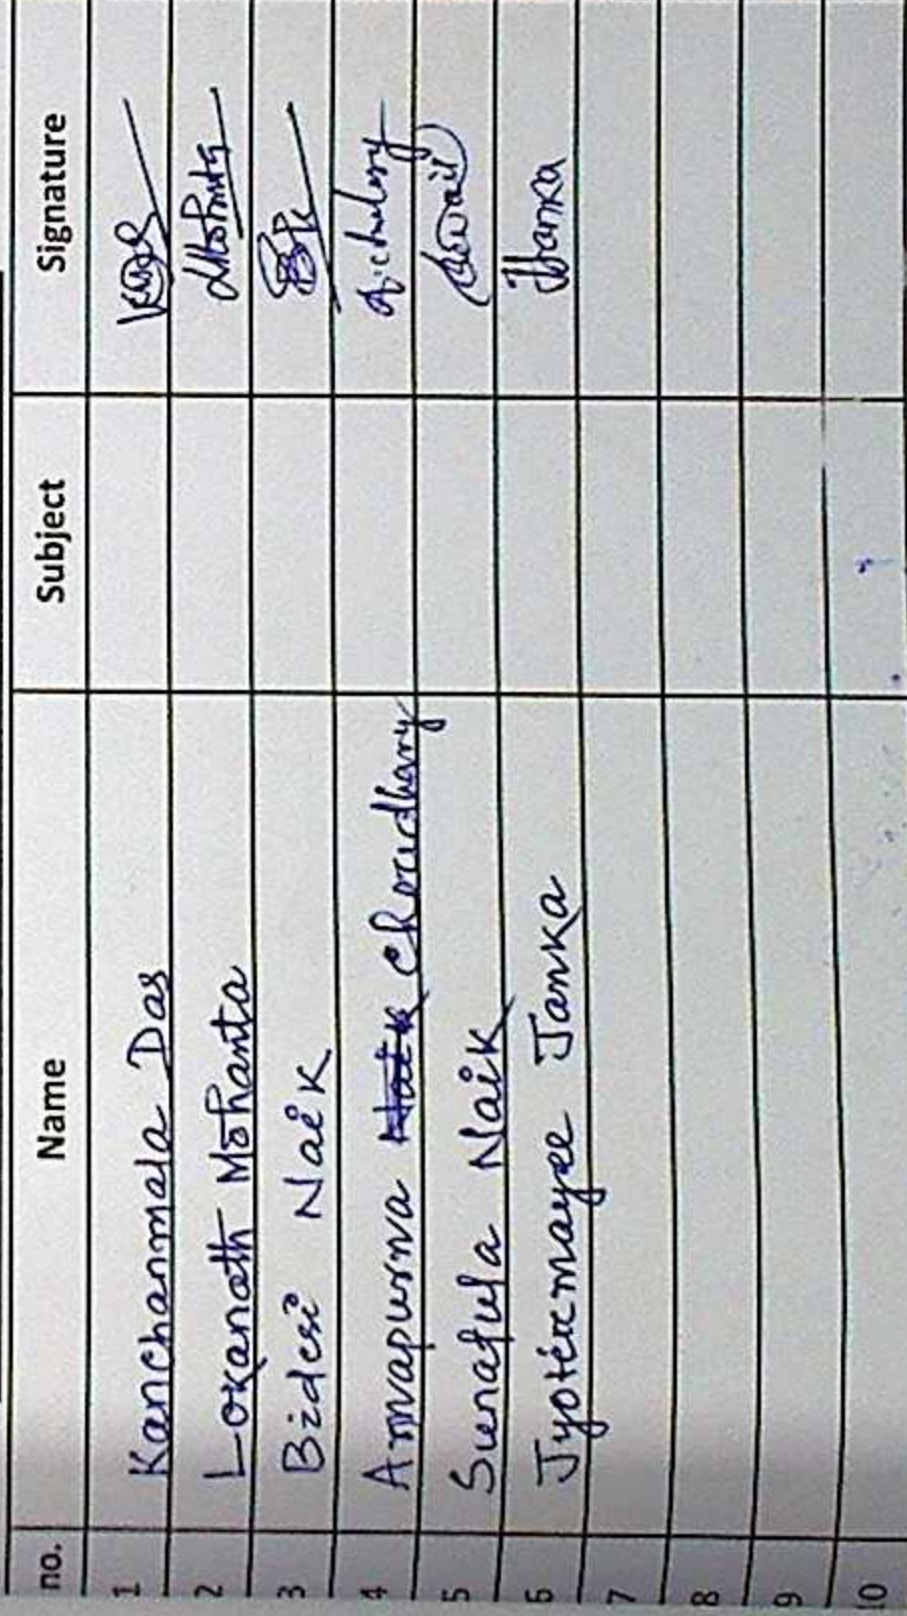 no. Name Subject Signature
1 Kanchanmala Das
2 Lokanath Mohanta Mohanta
3 Bidesi Naik
4 Annapurna Naik Choudhary
5 Sunafula Naik
6 Jyotirmayee Janka JJanka
7
8
9
10